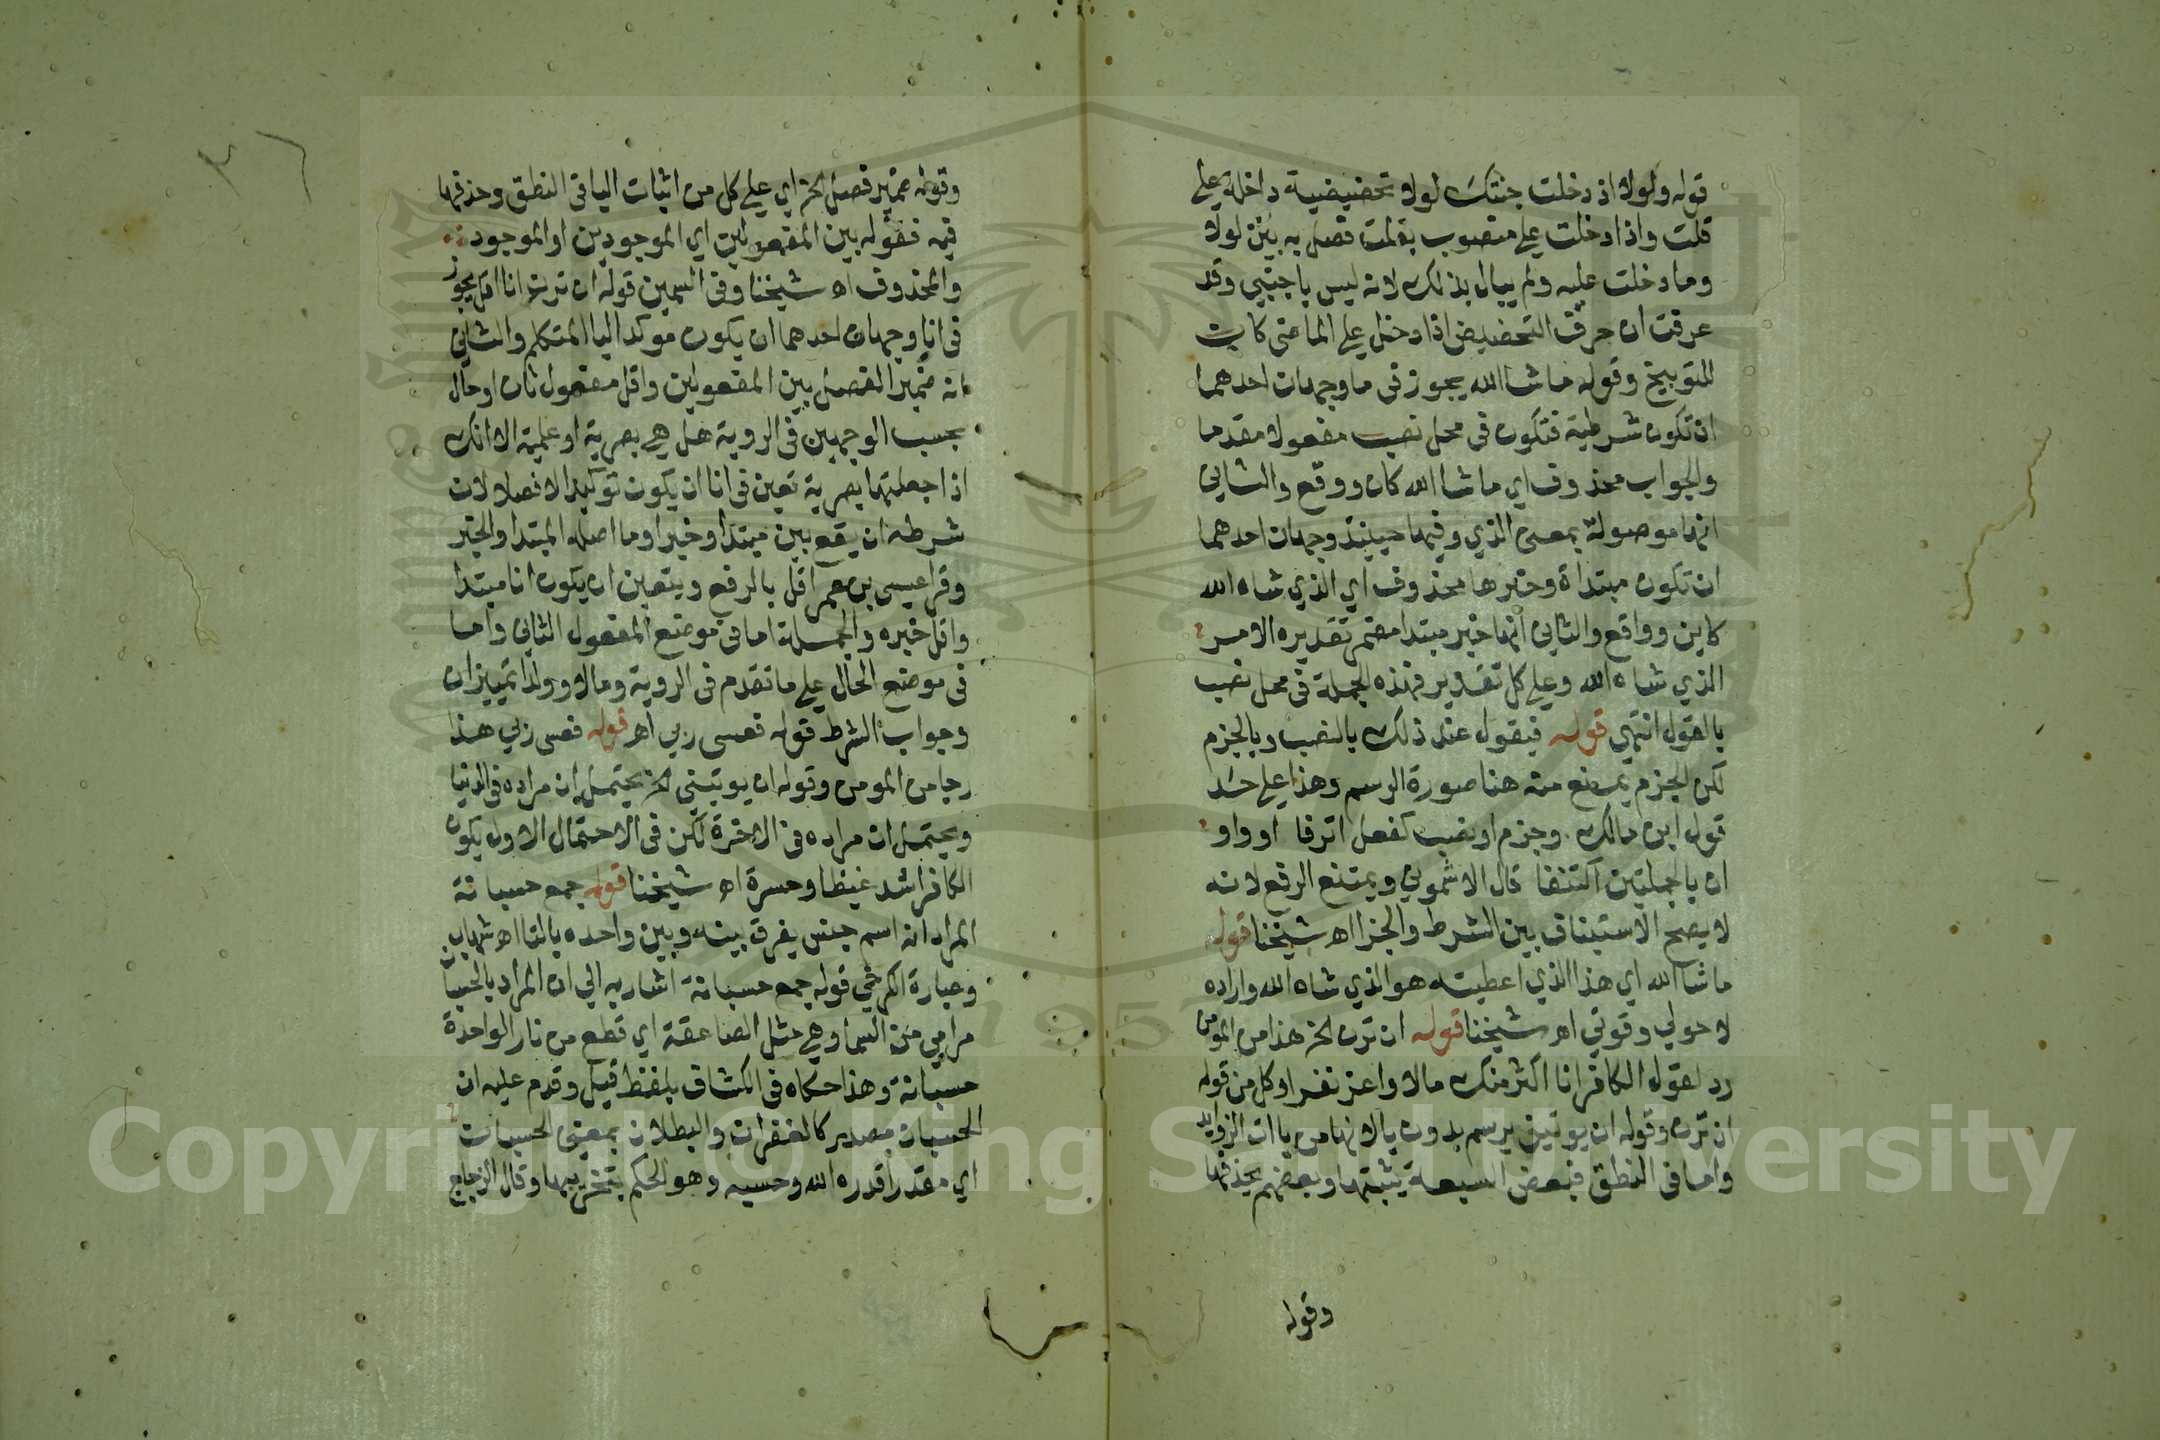 قوله ولولا اذ دخلت جنتك لولا تحضيضية داخلة على
قلت واذ دخلت على منصوب بقلت فصل به بين لولا
وما دخلت عليه ولم يبال بذلك لانه ليس باجنبي وقد
عرفت ان حرف التحضيض اذا دخل على الماضي كان
للتوبيخ وقوله ما شا الله يجوز في ما وجهان احدهما
ان تكون شرطية فتكون في محل نصب مفعولا مقدما
والجواب محذوف اي ما شا الله كان ووقع والثاني
انها موصولة بمعنى الذي وفيها حينيذ وجهان احدهما
ان تكون مبتداة وخبرها محذوف اي الذي شاه الله
كاين وواقع والثاني انها خبر مبتدا مضمر تقديره الامر
الذي شاه الله وعلى كل تقدير فهذه الجملة في محل نصب
بالقول انتهى قوله فيقول عند ذلك بالنصب وبالجزم
لكن الجزم يمنع منه هنا صورة الرسم وهذا على حد
قول ابن مالك وجزم او نصب لفعل اثر فا او واو
ان بالجملتين اكتنفا قال الاشموني ويمتنع الرفع لانه
لا يصح الاستيناف بين الشرط والجزا اه شيخنا قوله
ما شا الله اي هذا الذي اعطيته هو الذي شاه الله واراده
لا حولي وقوتي اه شيخنا قوله ان ترن الخ هذا من المومن
رد لقول الكافر انا اكثر منك مالا واعز نفرا وكل من قوله
ان ترن وقوله ان يوتين يرسم بدون يا لانها من ياات الزوايد
واما في النطق فبعض السبعة يثبتها وبعضهم يحذفها
وقوله
وقوله ضمير فصل الخ اي على كل من اثبات اليا في النطق وحذفها
فيه فقوله بين المفعولين اي الموجودين او الموجود
والمحذوف اه شيخنا وفي السمين قوله ان ترن انا اقل يجوز
في انا وجهان احدهما ان يكون موكدا ليا المتكلم والثاني
انه ضمير الفصل بين المفعولين واقل مفعول ثان او حال
بحسب الوجهين في الروية هل هي بصرية او علمية الا انك
اذا جعلتها بصرية تعين في انا ان يكون توكيدا لا فصلا لان
شرطه ان يقع بين مبتدا وخبر او ما اصله المبتدا والخبر
وقرا عيسى بن عمر اقل بالرفع ويتعين ان يكون انا مبتدا
واقل خبره والجملة اما في موضع المفعول الثاني واما
في موضع الحال على ما تقدم في الروية ومالا وولدا تمييزان
وجواب الشرط قوله فعسى ربي اه قوله فعسى ربي هذا
رجا من المومن وقوله ان يوتيني الخ يحتمل ان مراده في الدنيا
ويحتمل ان مراده في الاخرة لكن في الاحتمال الاول يكون
الكافر اشد غيظا وحسرة اه شيخنا قوله جمع حسبانة
المراد انه اسم جنس يفرق بينه وبين واحده بالتا اه شهاب
وعبارة الكرخي قوله جمع حسبانة اشار به الى ان المراد بالحسبان
مرامي من السما وهي مثل الصاعقة اي قطع من نار الواحدة
حسبانة وهذا حكاه في الكشاف بلفظ قيل وقدم عليه ان
الحسبان مصدر كالغفران والبطلان بمعنى الحسبان
اي مقدرا قدره الله وحسبه وهو الحكم بتخريبها وقال الزجاج
Copyright © King Saud University
1957